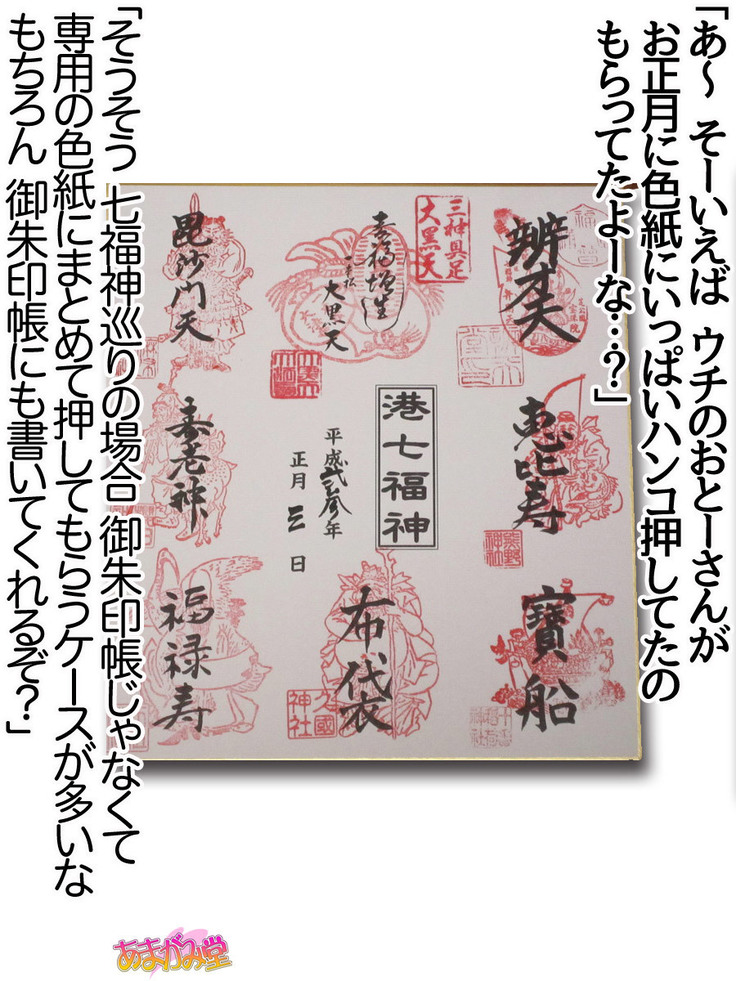 「あ～ そーいえば ウチのおとーさんが
お正月に色紙にいっぱいハンコ押してたの
もらってたよーな…?」
辨才天
三神具足
大黒天
大黒天
毘沙門天
恵比寿
熊野
神社
港七福神
平成弐拾参年
正月 三 日
寿老神
寶船
布袋
久國
神社
福禄寿
「そうそう 七福神巡りの場合 御朱印帳じゃなくて
専用の色紙にまとめて押してもらうケースが多いな
もちろん 御朱印帳にも書いてくれるぞ?」
あまがみ堂